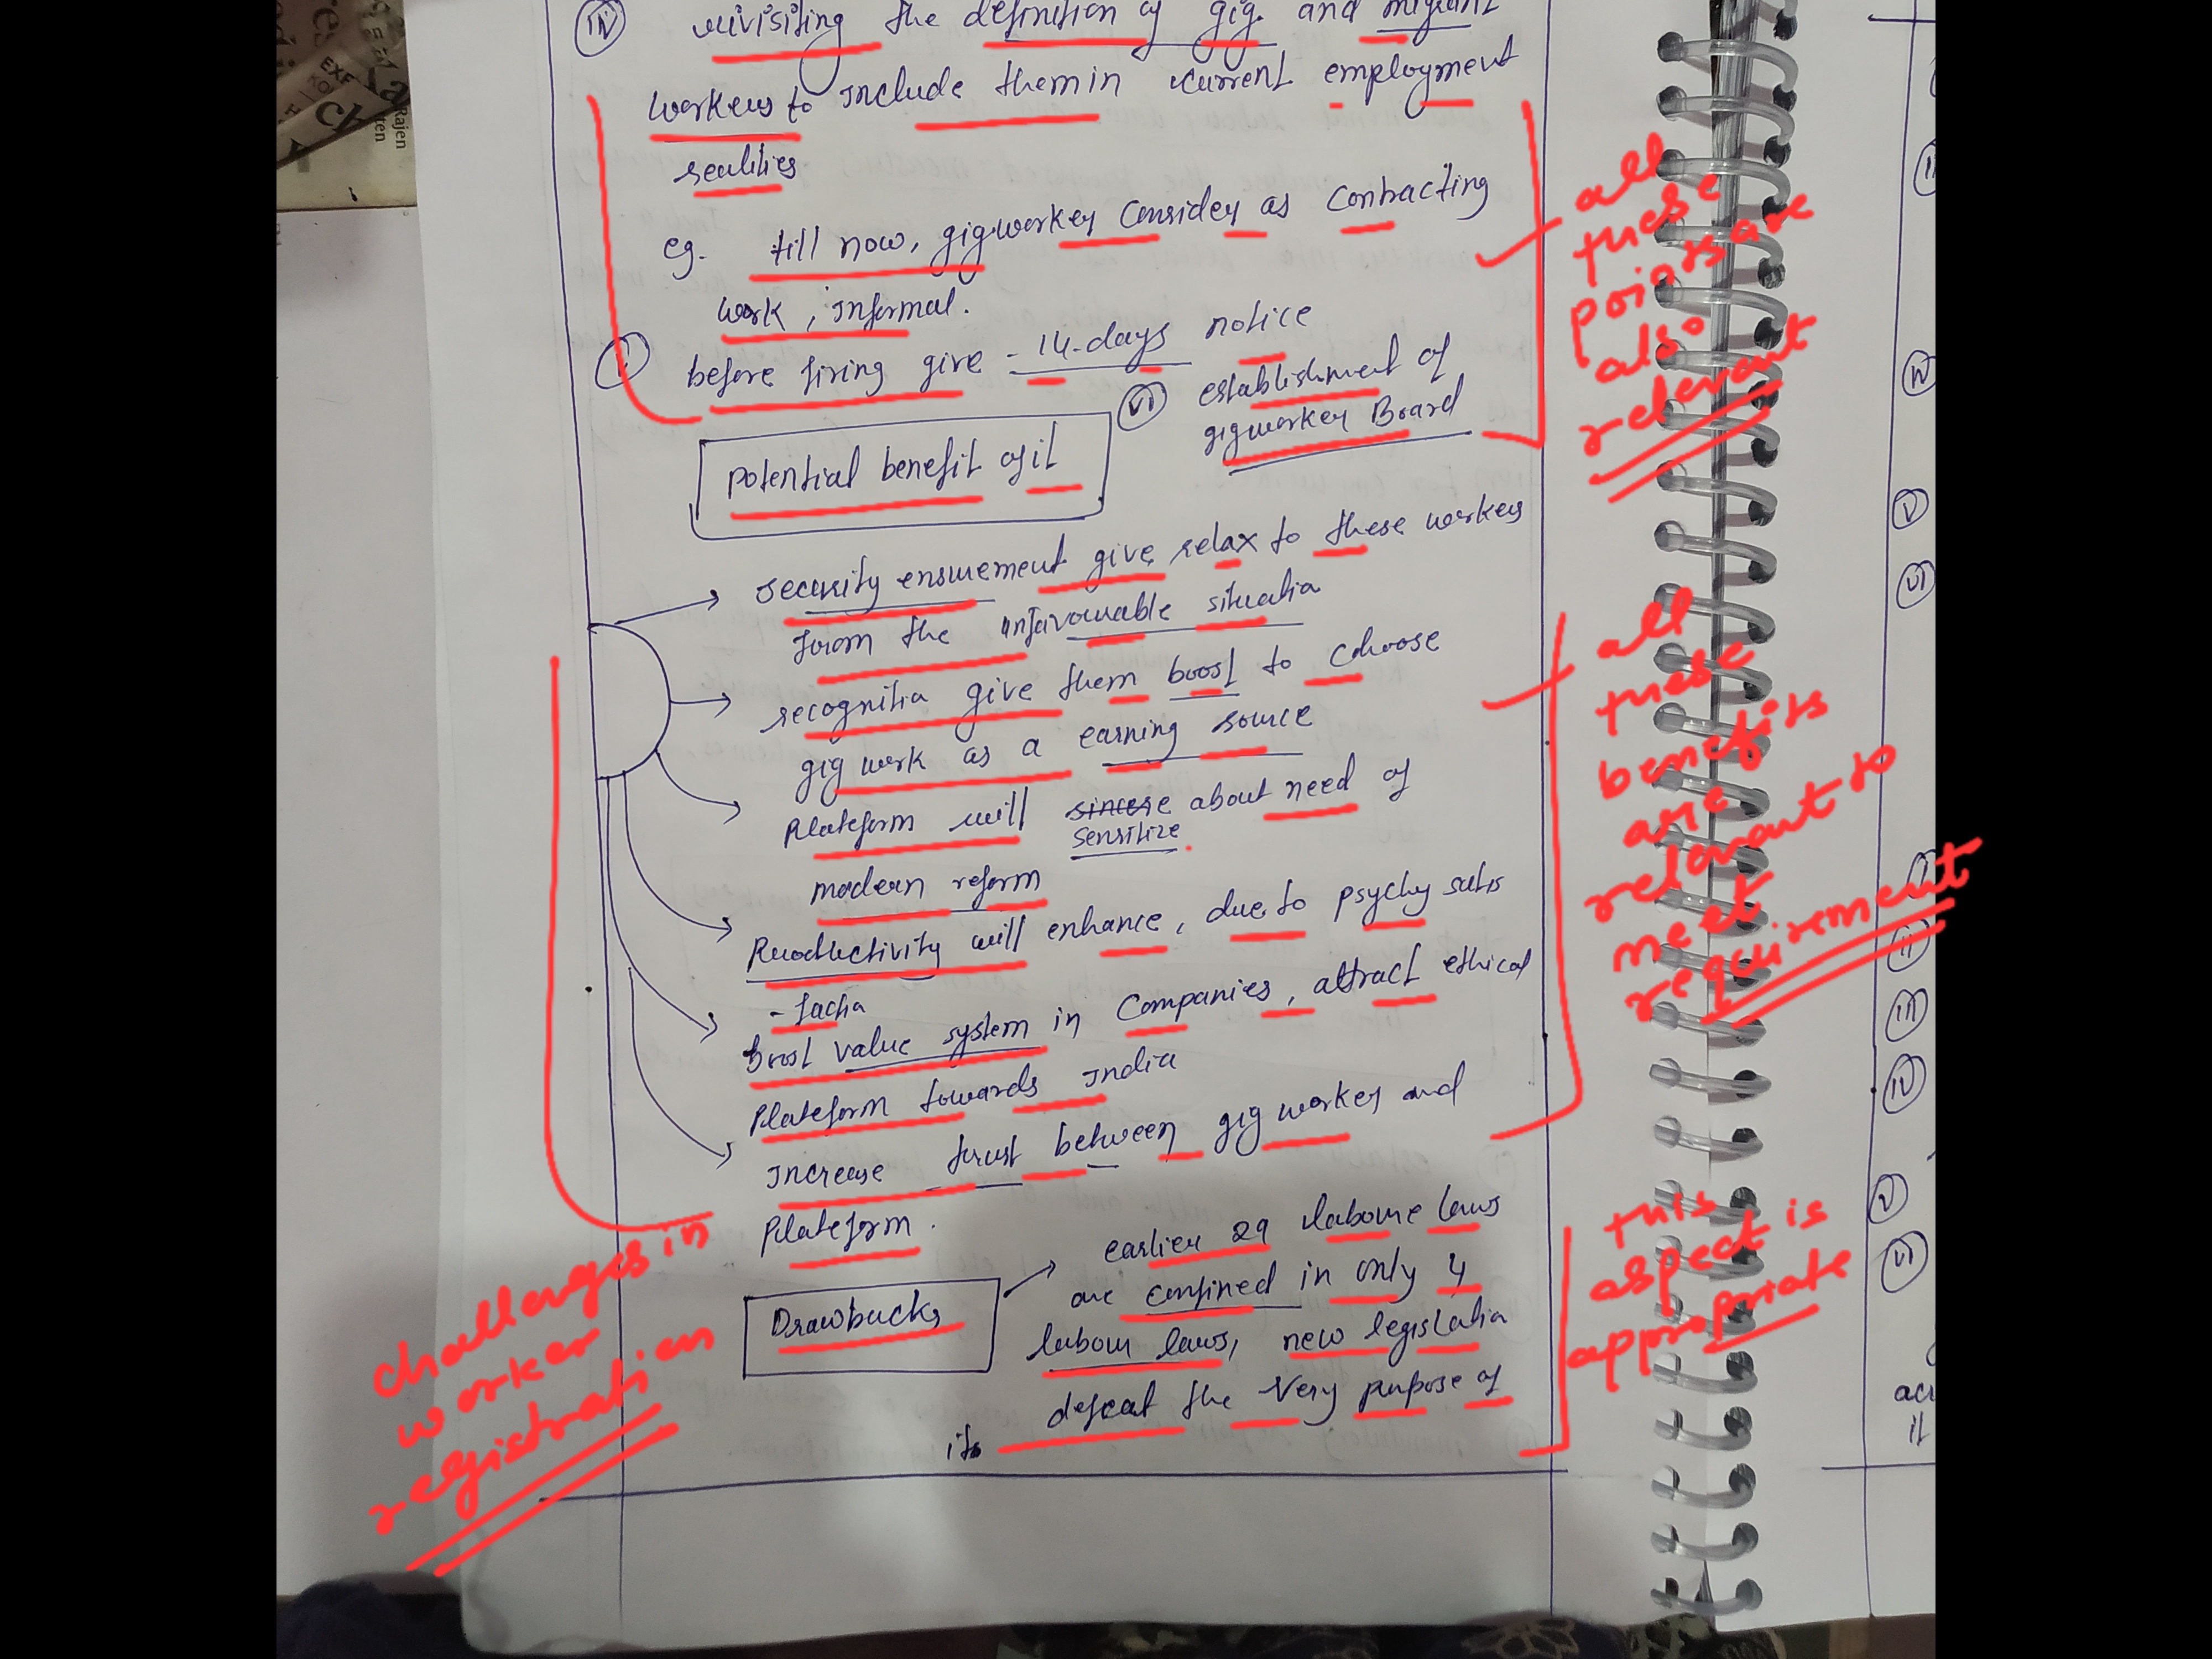 (iv) revisiting the definition of gig and migrant
workers to include them in current employment
realities
eg. till now, gig worker consider as contracting
work, informal.
(v) before firing give - 14-days notice
(vi) establishment of
gig worker Board
Potential benefit of it
→ Security ensurement give relax to these workers
from the unfavourable situatia
→ recognitia give them boost to choose
gig work as a earning source
→ Plateform will sincere about need of
sensitize
modern reform
→ Productivity will enhance, due to psychy satis
- factia
→ Boost value system in companies, attract ethical
Plateform towards India
→ Increase trust between gig worker and
Plateform.
Drawbacks → earlier 29 labour laws
are confined in only 4
labour laws, new legislatia
defeat the very purpose of
its
all
these
points are
also
relevant
all
these
benefits
are
relevant to
meet
requirement
this
aspect is
appropriate
challenges in
worker
registration
EXF
KO
Ch
Rajen
ten
(iv)
(v)
(vi)
(ii)
(iii)
(iv)
(v)
(vi)